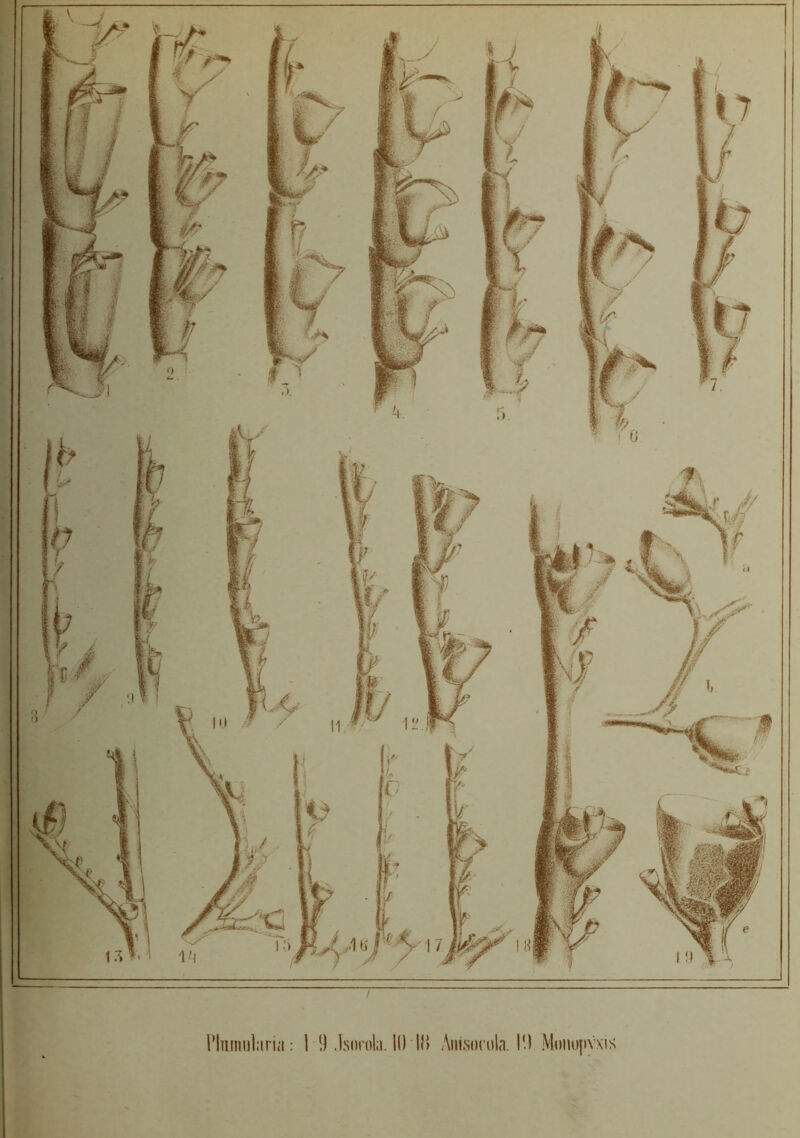 1
2.
3.
4.
5.
6
7.
8
9
10
11.
12.
a
b.
13.
14
15
16
17
18
19
e
Plumularia: 1-9 Isocola. 10-18 Anisocola. 19 Monopyxis